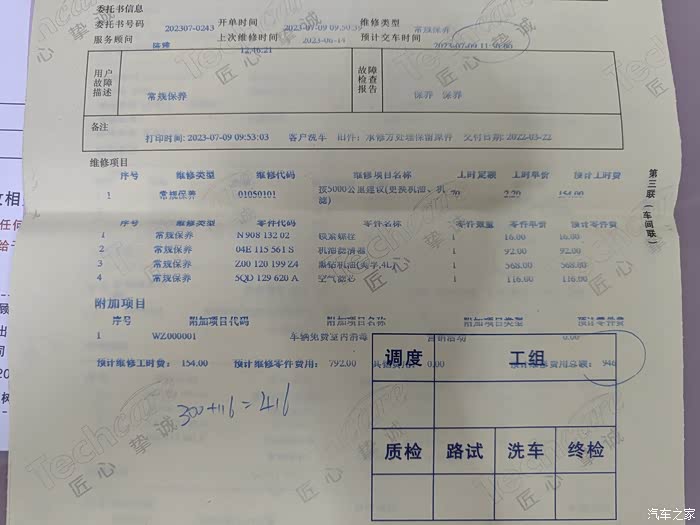 委托书信息
委托书号码 202307-0243 开单时间 2023-07-09 09:50:39 维修类型 常规保养
服务顾问 上次维修时间 2023-06-14 预计交车时间 2023-07-09 11:50:80
12:46:21
用户故障描述 常规保养 故障检查报告 保养 保养
备注
打印时间: 2023-07-09 09:53:03 客户洗车 旧件: 承修方处理保留原件 交付日期: 2022-03-22
维修项目
序号 维修类型 维修代码 维修项目名称 工时定额 工时单价 预计工时费
1 常规保养 01050101 按5000公里建议(更换机油、机滤) 70 2.20 154.00
序号 维修类型 零件代码 零件名称 零件数量 零件单价 预计零件费
1 常规保养 N 908 132 02 锁紧螺栓 1 16.00 16.00
2 常规保养 04E 115 561 S 机油滤清器 1 92.00 92.00
3 常规保养 Z00 120 199 Z4 1 568.00 568.00
4 常规保养 5QD 129 620 A 空气滤芯 1 116.00 116.00
附加项目
序号 附加项目代码 附加项目名称 附加项目类型 预计零件费
1 WZ000001 车辆免费室内消毒 营销活动 0.00
预计维修工时费: 154.00 预计维修零件费用: 792.00 其他费用: 0.00 预计维修费用总额: 946
300+116=416
调度 工组
质检 路试 洗车 终检
第三联(车间联)
Techcare
匠心挚诚
汽车之家